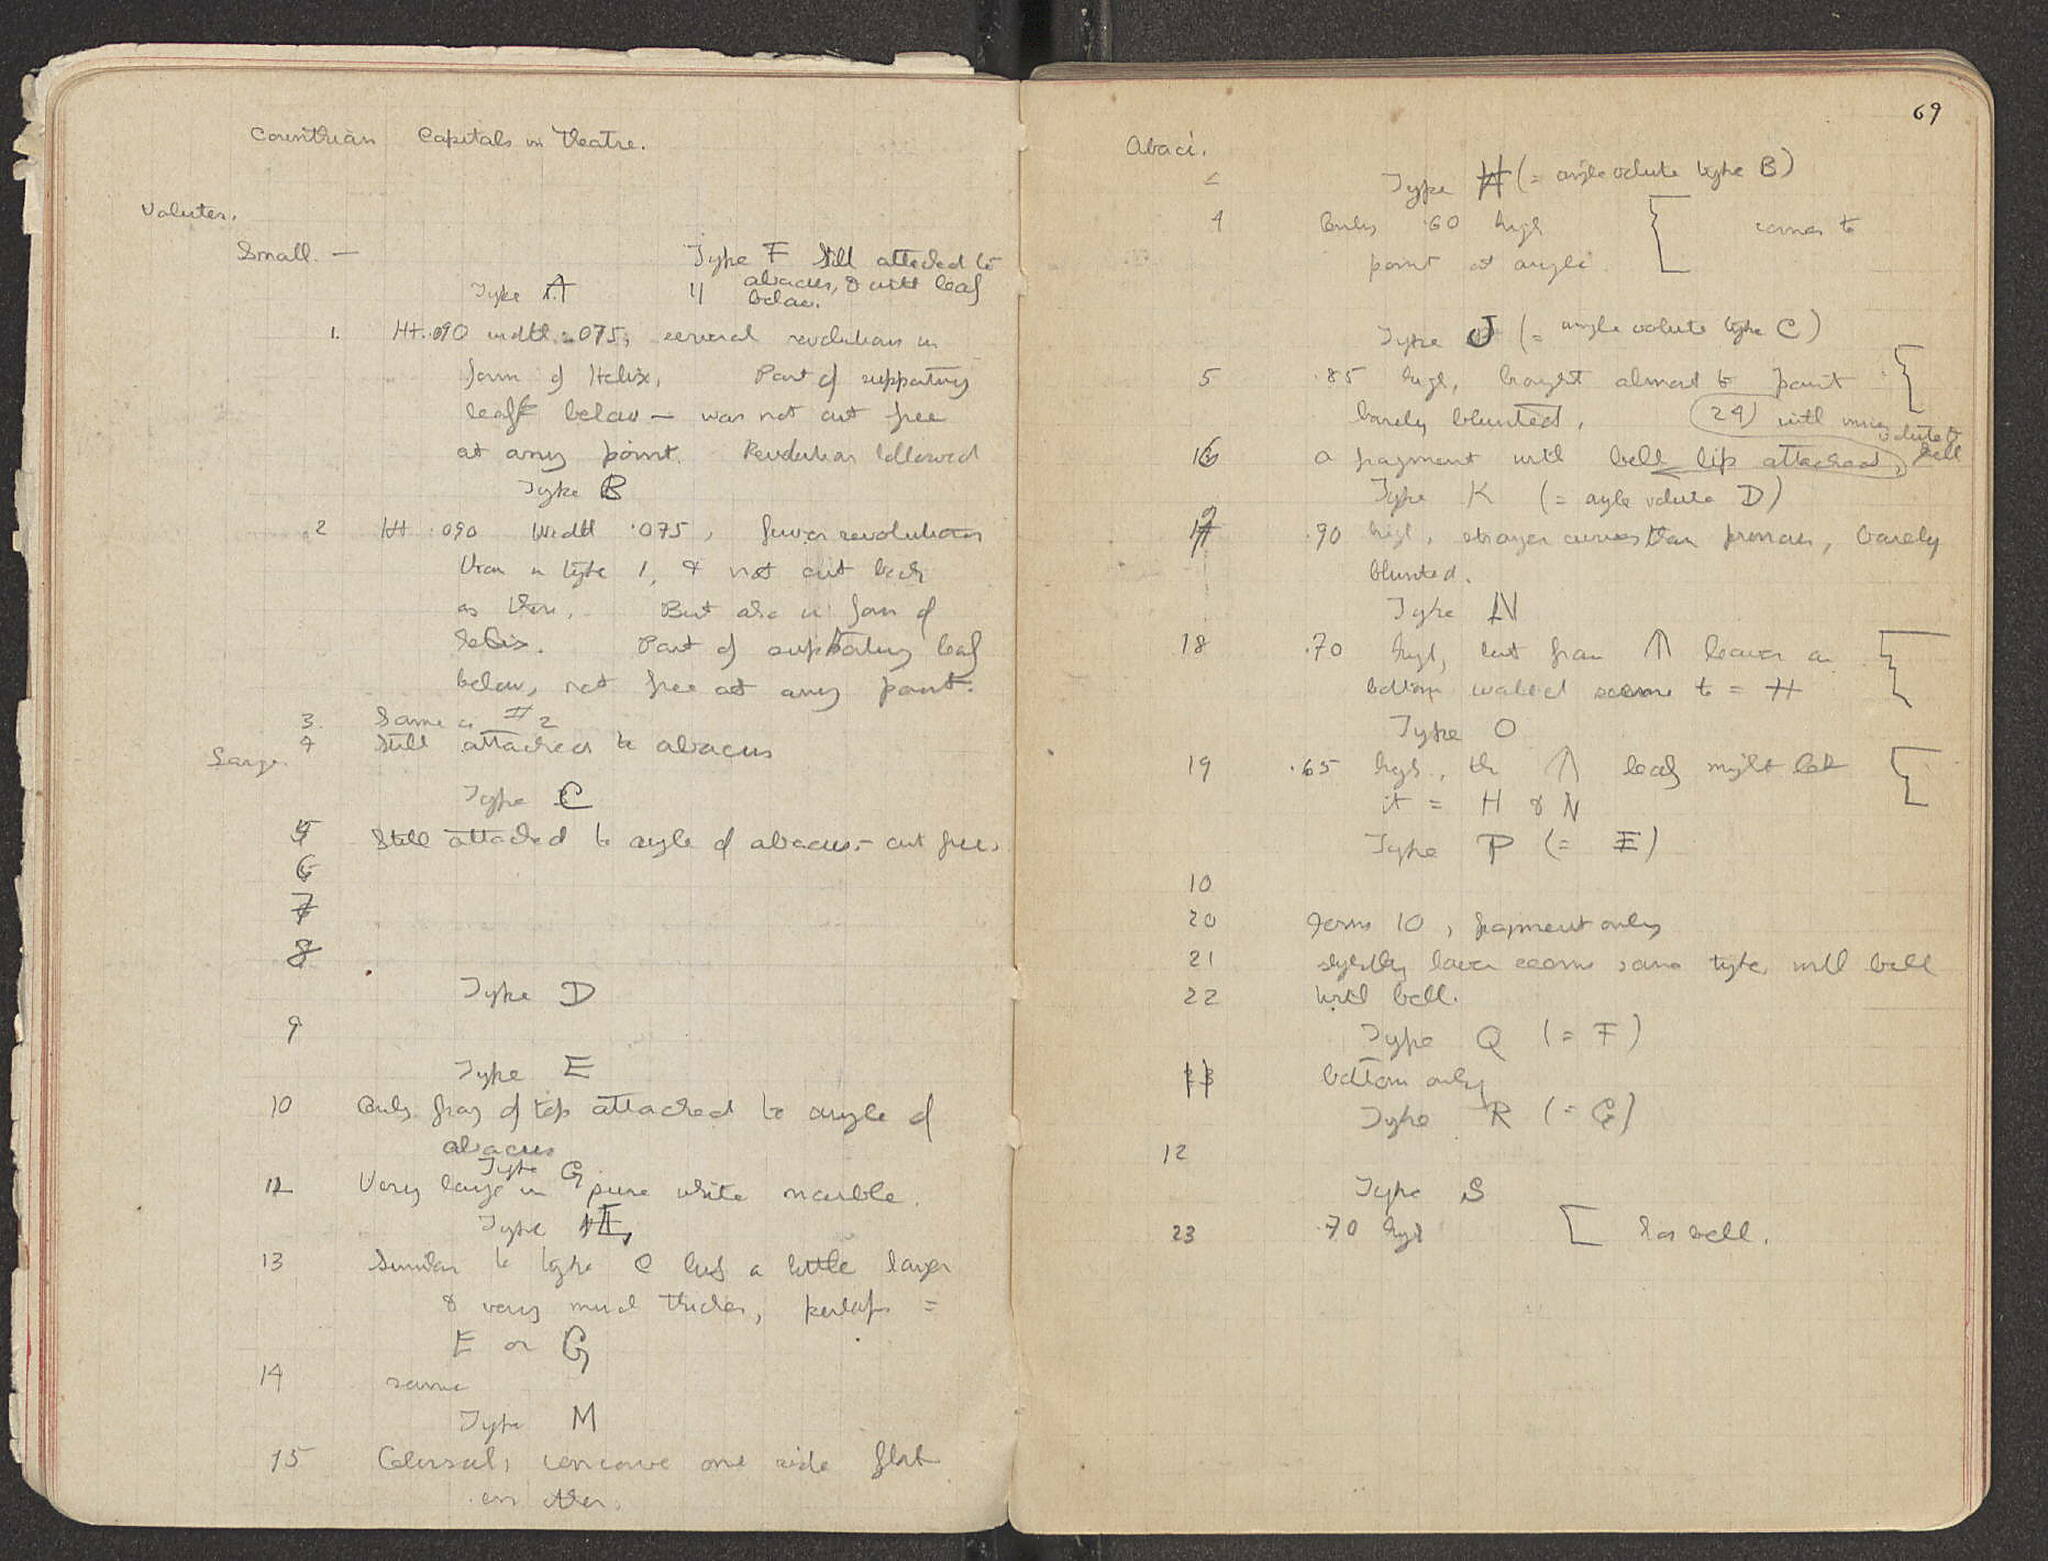 Corinthian Capitals in Theatre.
Volutes.
Small. —
Type F Still attached to
11 abacus, & with leaf
below.
Type A
1. Ht. .090 width .075, several revolutions in
form of Helix. Part of supporting
leaf below — was not cut free
at any point. Revolutions hollowed
Type B
2 Ht .090 Width .075, fewer revolutions
than in type 1, & not cut back
as there. But also in form of
helix. Part of supporting leaf
below, not free at any point.
3. Same as # 2
4 Still attached to abacus
Large.
Type C
5 Still attached to angle of abacus - cut free.
6
7
8
Type D
9
Type E
10 Only frag of top attached to angle of
abacus
Type G
12 Very large in pure white marble.
Type L
13 Similar to type C but a little larger
& very much thicker, perhaps =
E or G
14 same
Type M
15 Colossal, concave one side flat
on other.
69
Abaci.
Type H (= angle volute type B)
4 Only .60 high comes to
point at angle.
Type J (= angle volute type C)
5 .85 high, brought almost to point
barely blunted. 24 with inner volute & bell
16 a fragment with bell lip attached,
Type K (= angle volute D)
9
17 .90 high, stronger curves than previous, barely
blunted.
Type N
18 .70 high, but from leaves on
bottom would seem to = H
Type O
19 .65 high, the leaf might let
it = H & N
Type P (= E)
10
20 Joins 10, fragment only
21 slightly lower seems same type, with bell
22 with bell.
Type Q (= F)
11 bottom only
Type R (= G)
12
Type S
23 .70 high has bell.